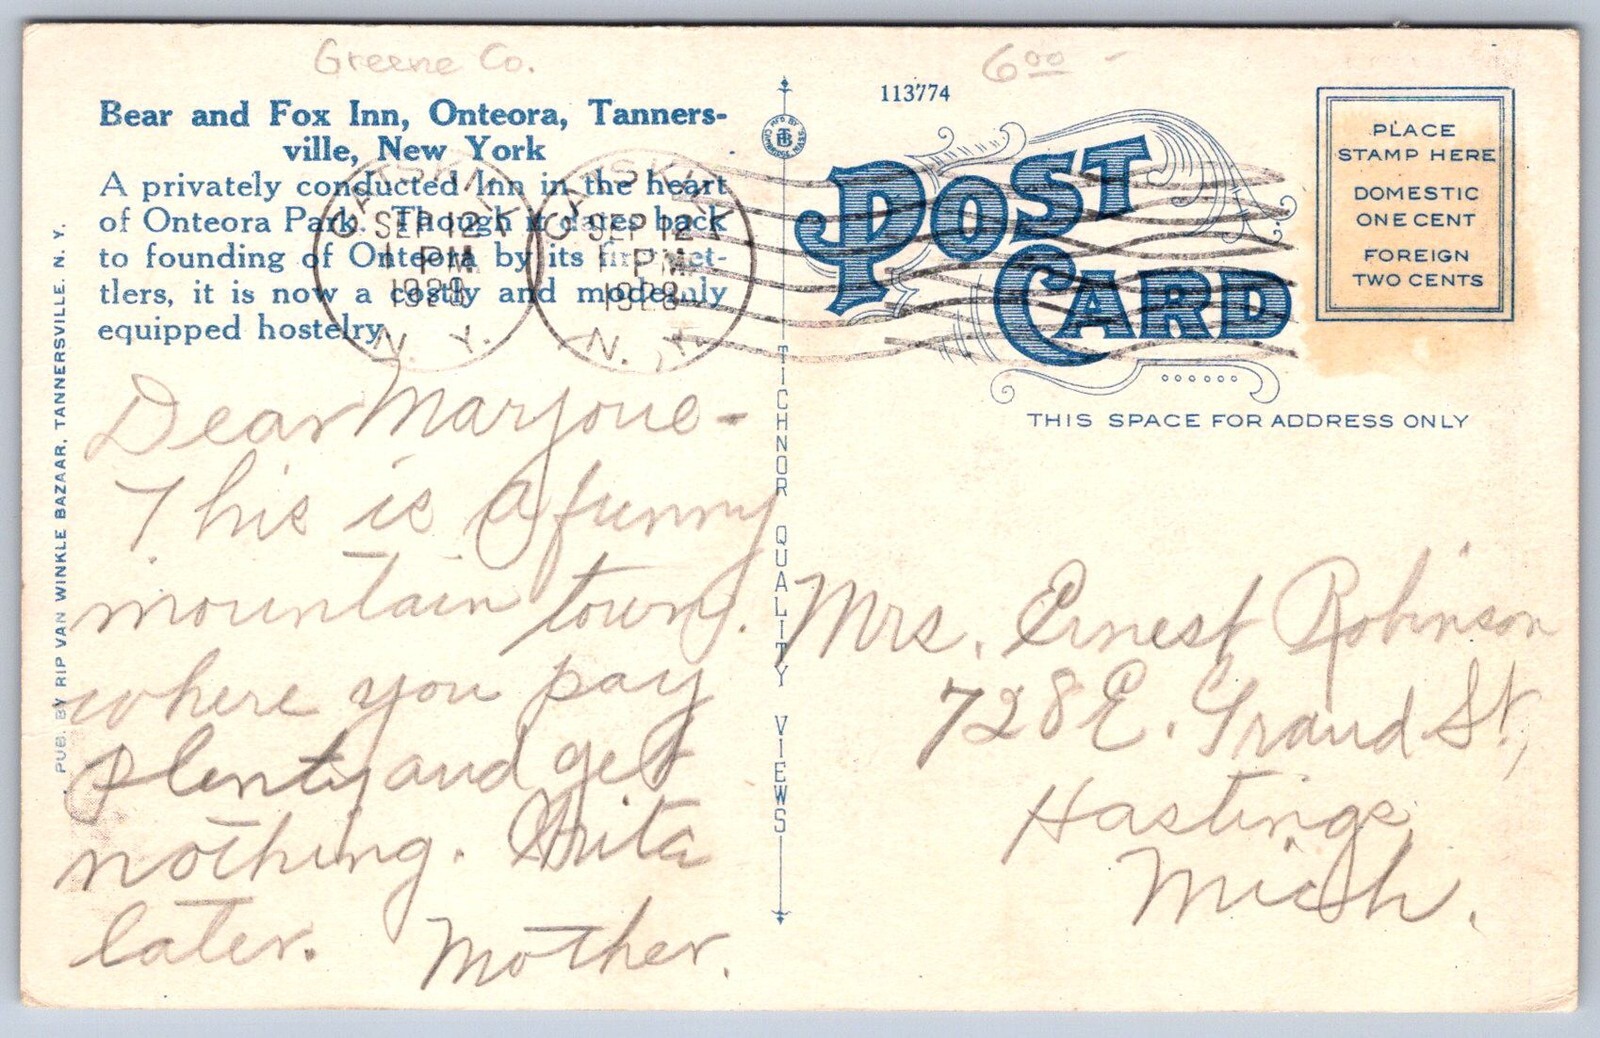 Greene Co.
6.00 -
Bear and Fox Inn, Onteora, Tanners-
ville, New York
A privately conducted Inn in the heart
of Onteora Park. Though it dates back
to founding of Onteora by its first set-
tlers, it is now a costly and modernly
equipped hostelry.
CATSKILL
SEP 12
1 PM
1928
N. Y.
CATSKILL
SEP 12
1 PM
1928
N. Y.
Dear Marjorie -
This is a funny
mountain town.
where you pay
plenty and get
nothing. Write
later.
Mother.
PUB. BY RIP VAN WINKLE BAZAAR, TANNERSVILLE, N. Y.
MFD. BY
TB
CAMBRIDGE, MASS.
TICHNOR QUALITY VIEWS
113774
POST
CARD
PLACE
STAMP HERE
DOMESTIC
ONE CENT
FOREIGN
TWO CENTS
THIS SPACE FOR ADDRESS ONLY
Mrs. Ernest Robinson
728 E. Grand St,
Hastings
Mich.